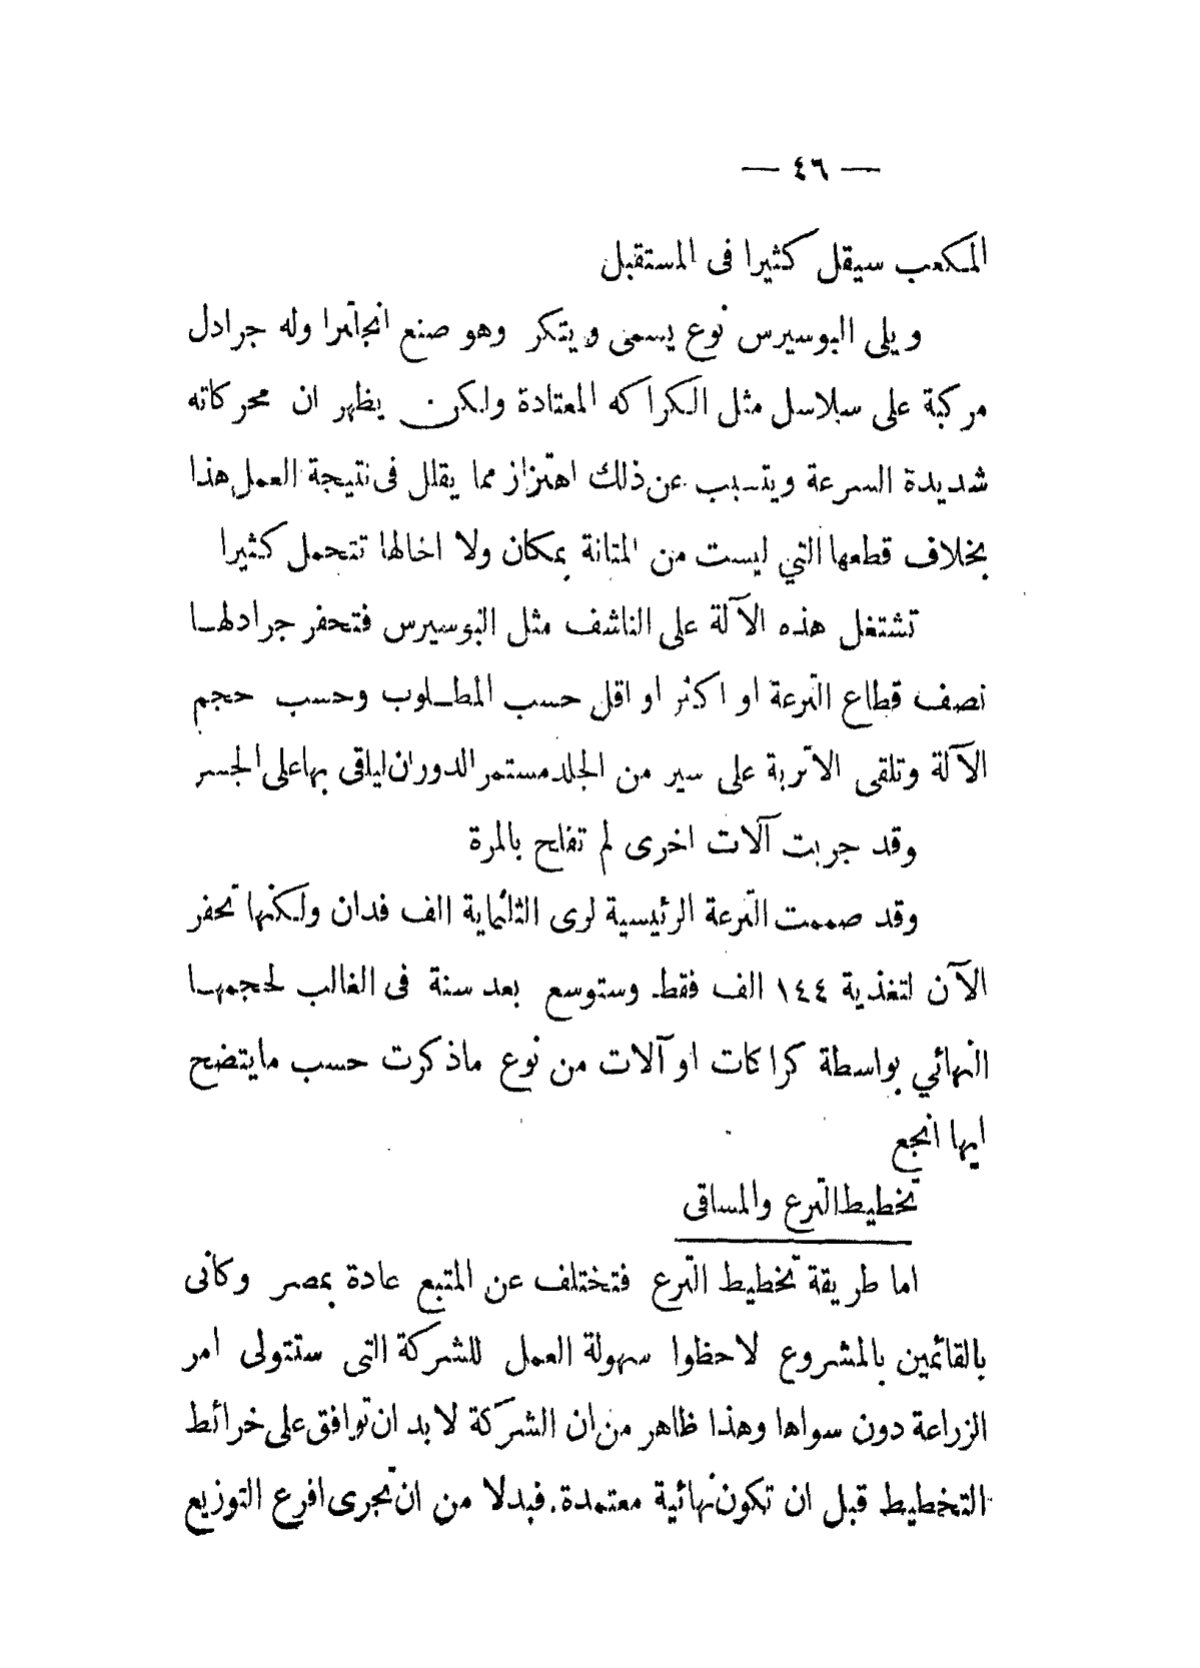 — ٤٦ —
المكعب سيقل كثيرا فى المستقبل
ويلى البوسيرس نوع يسمى ويتكر وهو صنع انجلترا وله جرادل
مركبة على سلاسل مثل الكراكه المعتادة ولكن يظهر ان محركاته
شديدة السرعة ويتسبب عن ذلك اهتزاز مما يقلل فى نتيجة العمل هذا
بخلاف قطعها التي ليست من المتانة بمكان ولا اخالها تتحمل كثيرا
تشتغل هذه الآلة على الناشف مثل البوسيرس فتحفر جرادلهـا
نصف قطاع الترعة او اكثر او اقل حسب المطـلوب وحسب حجم
الآلة وتلقى الاتربة على سير من الجلد مستمر الدوران ليلقى بها على الجسر
وقد جربت آلات اخرى لم تفلح بالمرة
وقد صممت الترعة الرئيسية لرى الثلثماية الف فدان ولكنها تحفر
الآن لتغذية ١٤٤ الف فقط وستوسع بعد سنة فى الغالب لحجمهـا
النهائي بواسطة كراكات او آلات من نوع ماذكرت حسب مايتضح
ايها انجع
تخطيط الترع والمساقى
اما طريقة تخطيط الترع فتختلف عن المتبع عادة بمصر وكانى
بالقائمين بالمشروع لاحظوا سهولة العمل للشركة التى ستتولى امر
الزراعة دون سواها وهذا ظاهر من ان الشركة لا بد ان توافق على خرائط
التخطيط قبل ان تكون نهائية معتمدة. فبدلا من ان تجرى افرع التوزيع